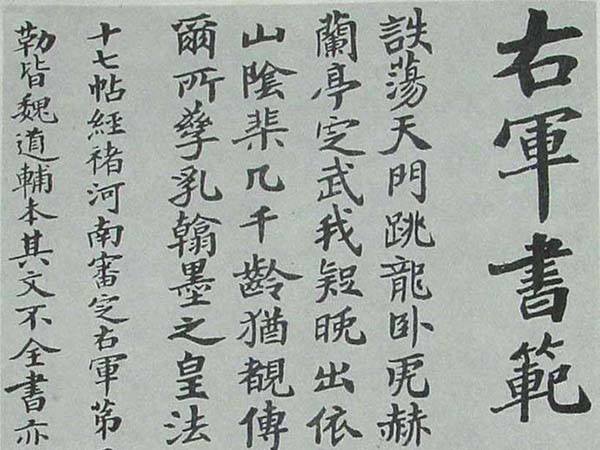 右軍書範
詄蕩天門跳龍卧虎赫
蘭亭㝎武我疑晚出依
山陰棐几千齡猶覩傳
爾所孳乳翰墨之皇法
十七帖經褚河南審㝎右軍苐
勒皆魏道輔本其文不全書亦